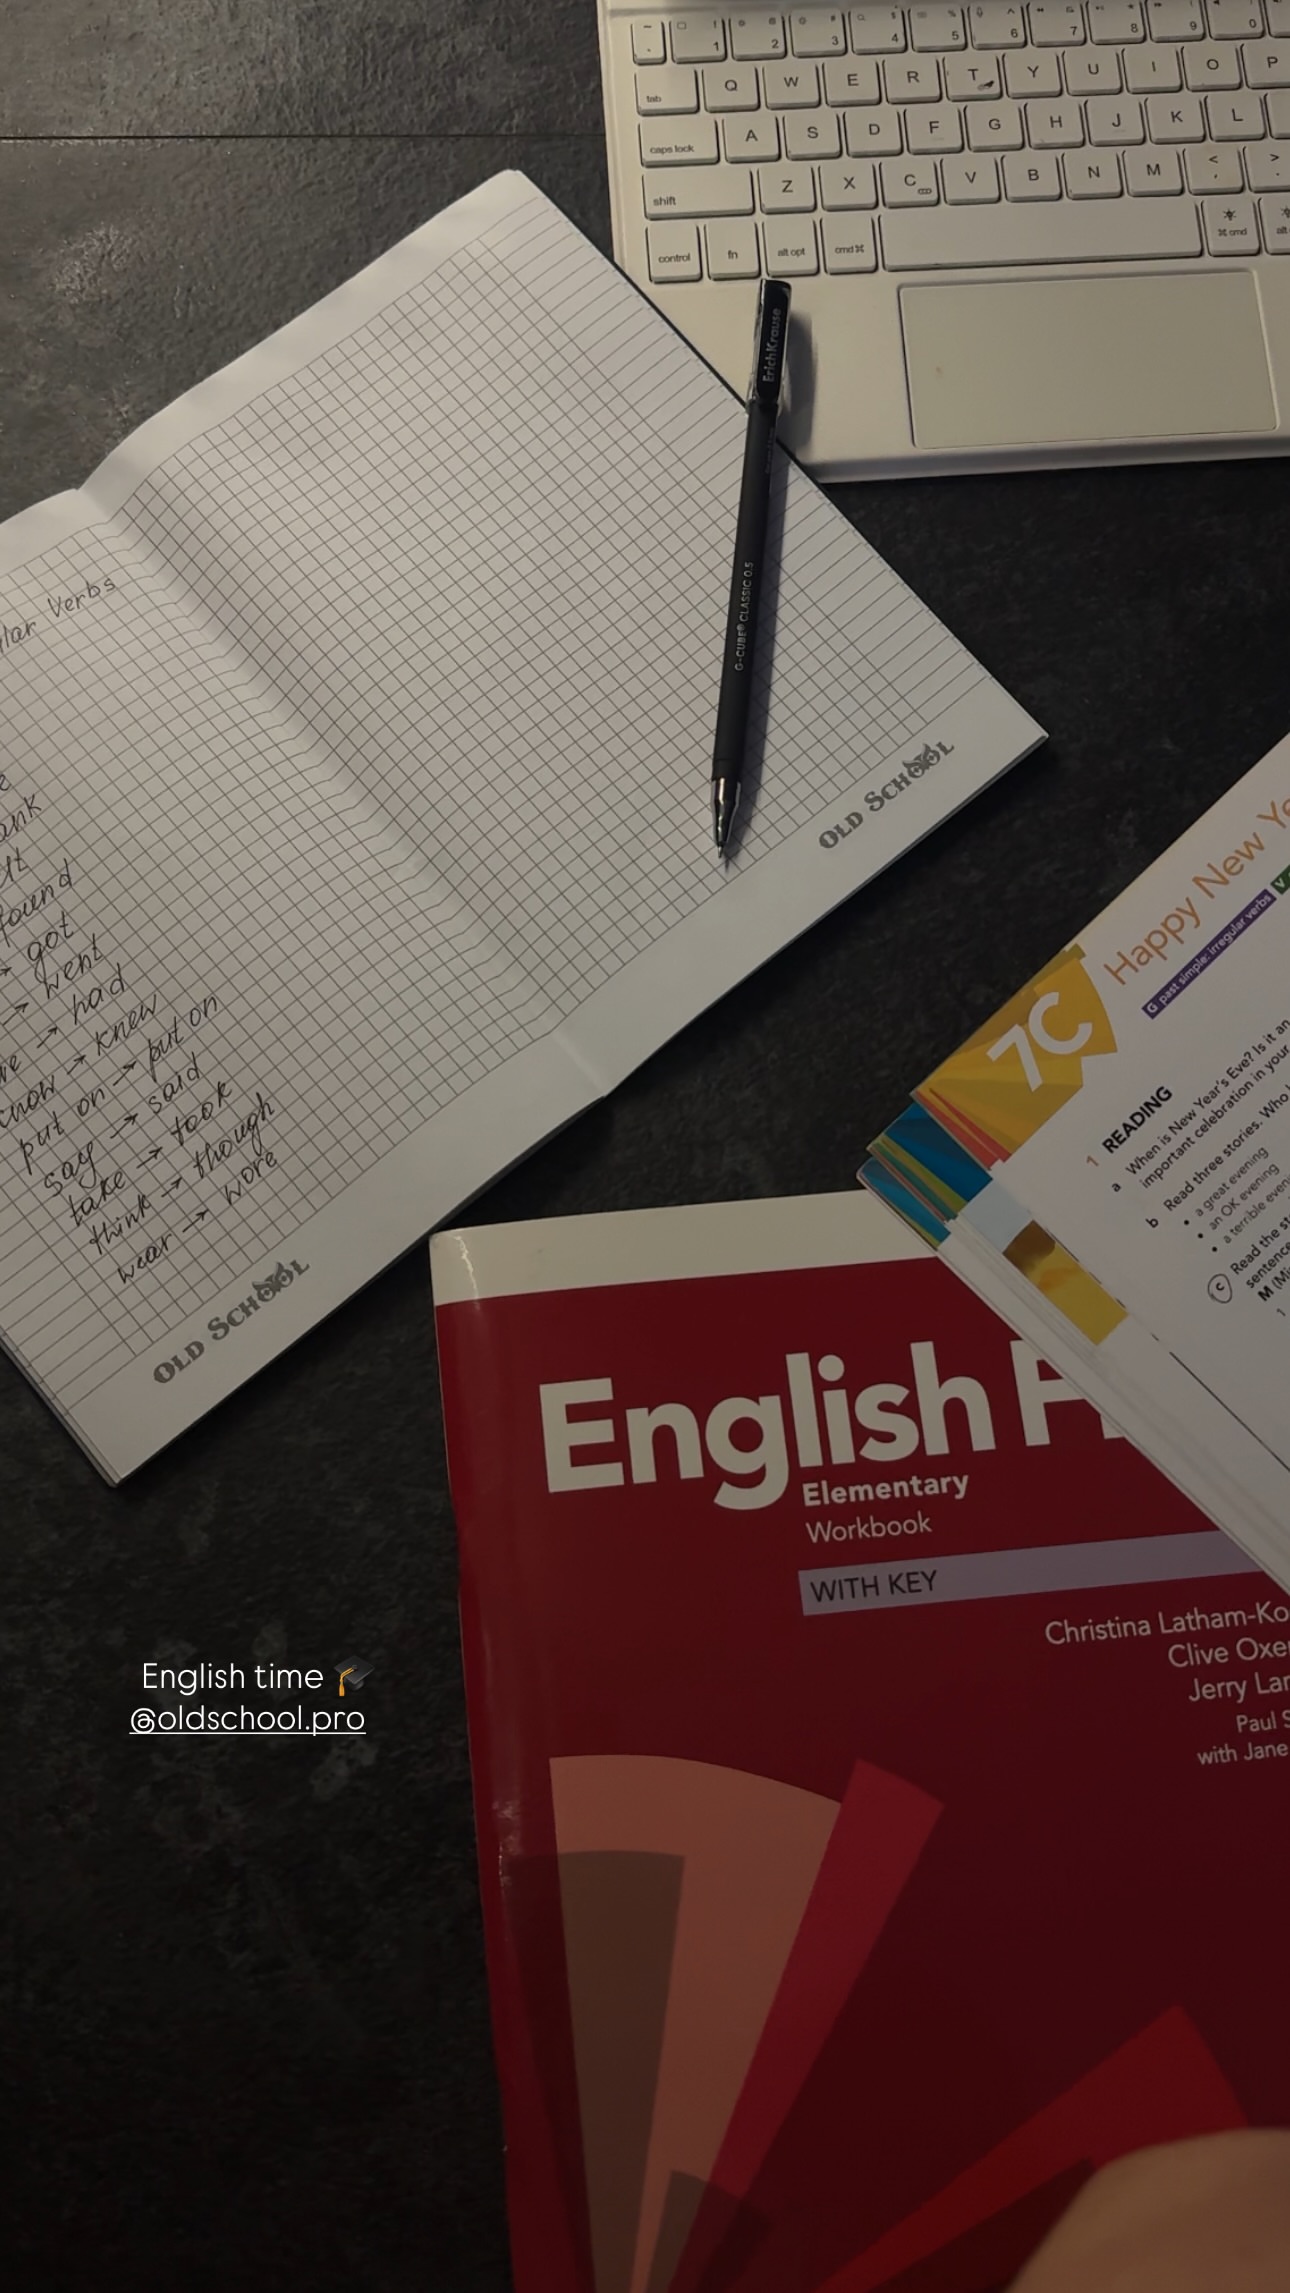 1 2 3 4 5 6 7 8 9 0
tab Q W E R T Y U I O P
caps lock A S D F G H J K L
shift Z X C V B N M < , > .
control fn alt opt cmd ⌘ ⌘ cmd alt
ErichKrause
G-CUBE® CLASSIC 0.5
lar Verbs
ank
lt
found
→ got
→ went
ve → had
know → knew
put on → put on
say → said
take → took
think → though
wear → wore
OLD SCHOOL
OLD SCHOOL
7C Happy New Ye
G past simple: irregular verbs V
1 READING
a When is New Year's Eve? Is it an
important celebration in your
b Read three stories. Who
• a great evening
• an OK evening
• a terrible even
c Read the st
sentence
M (Mi
1
English F
Elementary
Workbook
WITH KEY
Christina Latham-Ko
Clive Oxe
Jerry Lar
Paul S
with Jane
English time 🎓
@oldschool.pro